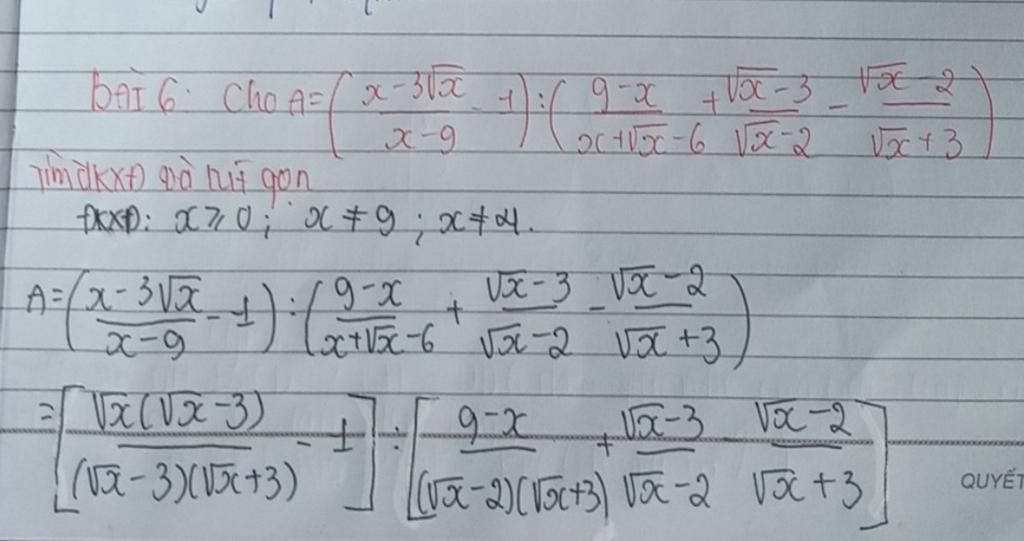 BÀI 6: Cho A = ( (x - 3√x)/(x - 9) - 1 ) : ( (9 - x)/(x + √x - 6) + (√x - 3)/(√x - 2) - (√x - 2)/(√x + 3) )
Tìm đkxđ và rút gọn
Đkxđ: x ≥ 0; x ≠ 9; x ≠ 4.
A = ( (x - 3√x)/(x - 9) - 1 ) : ( (9 - x)/(x + √x - 6) + (√x - 3)/(√x - 2) - (√x - 2)/(√x + 3) )
= [ (√x(√x - 3))/((√x - 3)(√x + 3)) - 1 ] : [ (9 - x)/((√x - 2)(√x + 3)) + (√x - 3)/(√x - 2) - (√x - 2)/(√x + 3) ]
QUYẾT